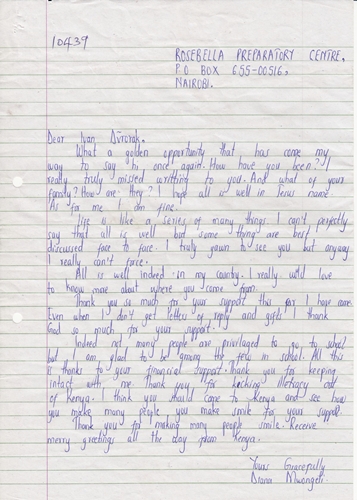 10439
ROSEBELLA PREPARATORY CENTRE,
P O BOX 655-00516,
NAIROBI.
Dear Ivan Dvorak.
What a golden opportunity that has come my
way to say hi once again. How have you been? I
really truly missed writting to you. And what of your
family? How are they? I hope all is well in Jesus name.
As for me I am fine!
Life is like a series of many things. I can't perfectly
say that all is well but some thing are best
discussed face to face. I truly yawn to see you but anyway
I really can't force.
All is well indeed in my country. I really would love
to know more about where you come from.
Thank you so much for your support this far I hope more.
Even when I don't get letters of reply and gifts I thank
God so much for your support.
Indeed not many people are privilaged to go to school
but I am glad to be among the few in school. All this
is thanks to your financial support. Thank you for keeping
intact with me. Thank you for kicking illetracy out
of Kenya. I think you should come to Kenya and see how
you make many people you make smile for your support.
Thank you for making many people smile. Receive
merry greetings all the day from Kenya.
Yours Gracefully
Diana Mwongeli.